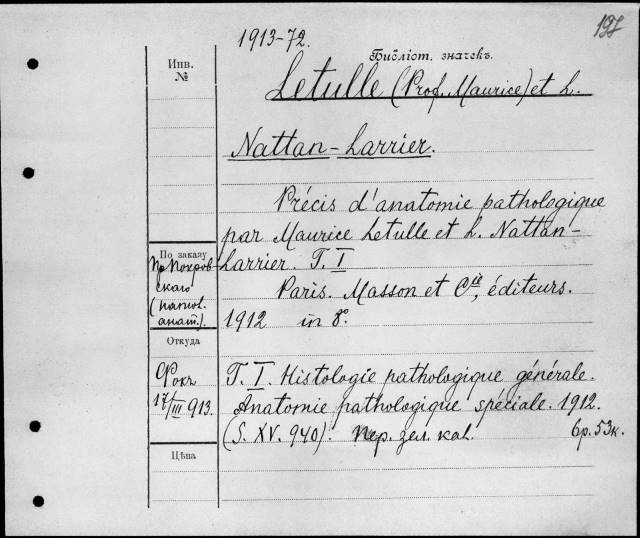 197
1913-72.
Инв.
№
Библіот. значекъ.
Letulle (Prof. Maurice) et L.
Nattan-Larrier.
Précis d'anatomie pathologique
par Maurice Letulle et L. Nattan-
Larrier. T. I
Paris. Masson et Cie, éditeurs.
1912 in 8°.
По заказу
Пр. Покров-
скаго
(патол.
анат.).
Откуда
Фокъ
17/III 913.
T. I. Histologie pathologique générale.
Anatomie pathologique spéciale. 1912.
(S. XV. 940). Пер. зел. кол.
6р. 53к.
Цѣна